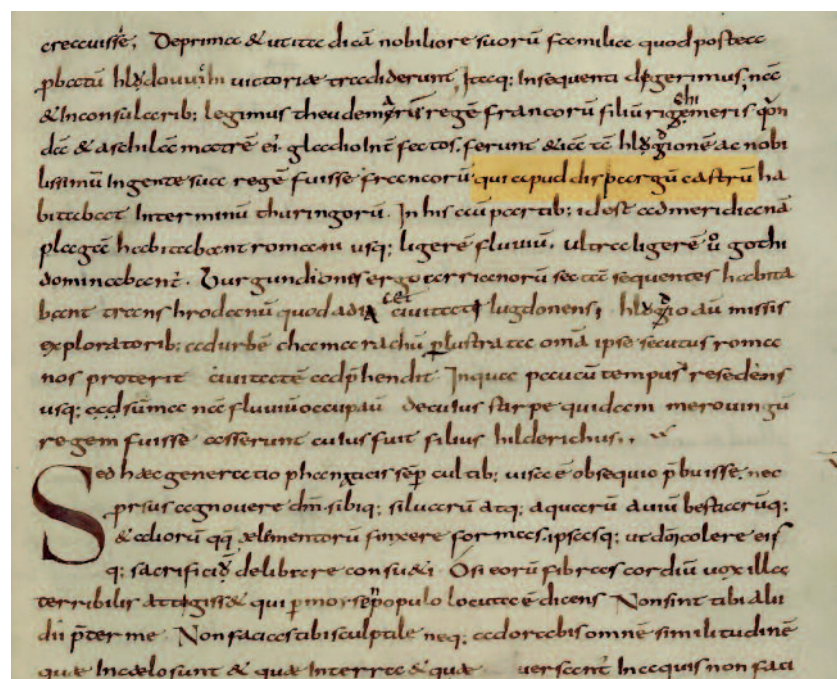 creauisse, De prima & ut ita dicā nobiliore suorū familia quod postea
ꝓbatū hlodouuihi uictoriae tradiderunt, Itaq; Insequenti nec
& Inconsularib; legimus theudemerē regē francorū filiū richimeris qn̄
dā & aschilā matrē ei' gladio Int̄fectos. ferunt & iā tc̄ hlogionē ac nobi
lissimū Ingente sua regē fuisse francorū qui apud dispargū castrū ha
bitabat Interminū thuringorū. In his aū partib; id est ad meridianā
plagā habitabant romani usq; ligerē fluuiū, ultra ligerē u̅ gothi
dominabant̄. burgundiones ergo arrianorū sectā sequentes habita
bant trans hrodanū quod adiacet ciuitati lugdonensi, hlogio aū missis
exploratorib; ad urbē camarachū ꝑlustrata omā ipse secutus roma
nos proterit ciuitatē adp̄hendit In qua paucū tempus resedens
usq; ad sūma nā fluuiū occupau De cuius stirpe quidam merouingū
regem fuisse asserunt cuius fuit filius hilderichus..
Sed haec generatio phanaticis sēp cultib; uisa ē obsequio p̄buisse. nec
prsus agnouere dm̄. sibiq; siluarū atq; aquarū auiū bestiarūq;
& aliorū qq̄ elementorū finxere formas, ipsasq; ut dm̄ colere eis
q; sacrificiū delibare consueti O si eorū fibras cordiū uox illa
terribilis attigiss& qui ꝑ morsen populo locuta ē dicens Non sint tibi alii
dii p̄ter me Non facies tibi sculptile neq; adorabis omnē similitudinē
quae In caelo sunt & quae In terra & quae uersant̄ In aquis non faci